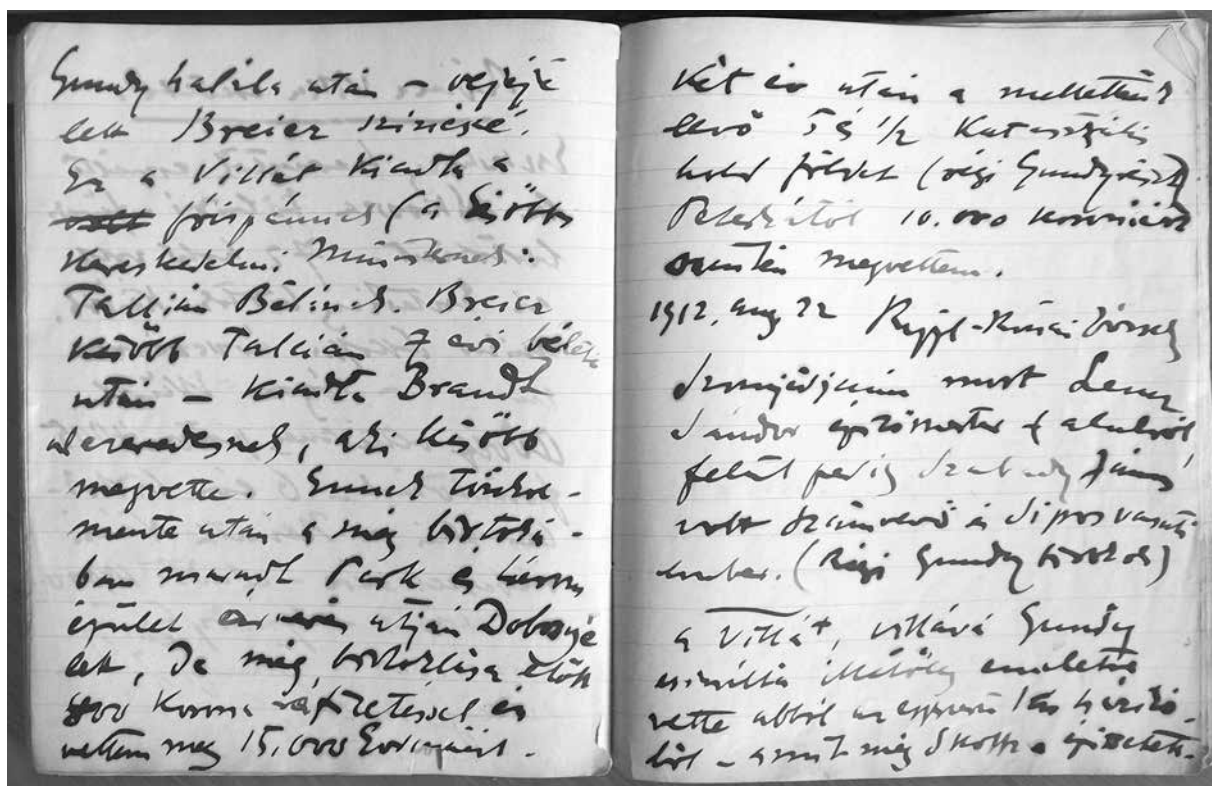 Gundy halála után – vejéjé
lett Breier Vinczéé.
Ez a Villát Kiadta a
volt főispánnak (a későbbi
Kereskedelmi Ministernek:
Tallián Bélának. Breier
később Tallián 7 évi bérlete
után – Kiadta Brandt
alezredesnek, aki később
megvette. Ennek
után a még birtoká-
ban maradt Park és három
épület utján Dobosyé
lett, De még birtoklása előtt
800 Korona ráfizetéssel én
vettem meg 15,000 Koronáért.
Két év után a mellettünk
levő 5 és 1/2 Katasztrális
hold földet (régi Gundyrészt)
10.000 koronáért
szintén megvettem.
1912, aug 22 Rippl-Rónai József
Szomjédjaim most Lencz
Sándor építőmester alulról
felül pedig Szabady János
volt számvevő és Sipos vasuti
ember. (Régi Gundy birtokok)
a Villát, villává Gundy
csinálta illetőleg emeletre
vette abból az egyszerű házikó-
ból – amit még építtetett.